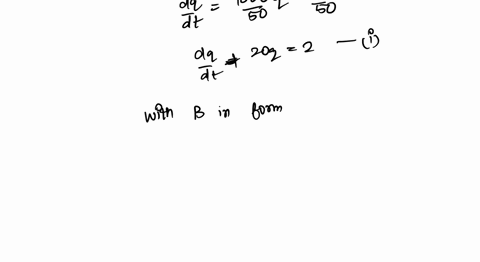 dq/dt = 1000/50 q /50
dq/dt + 20q = 2 — (i)
with B in form